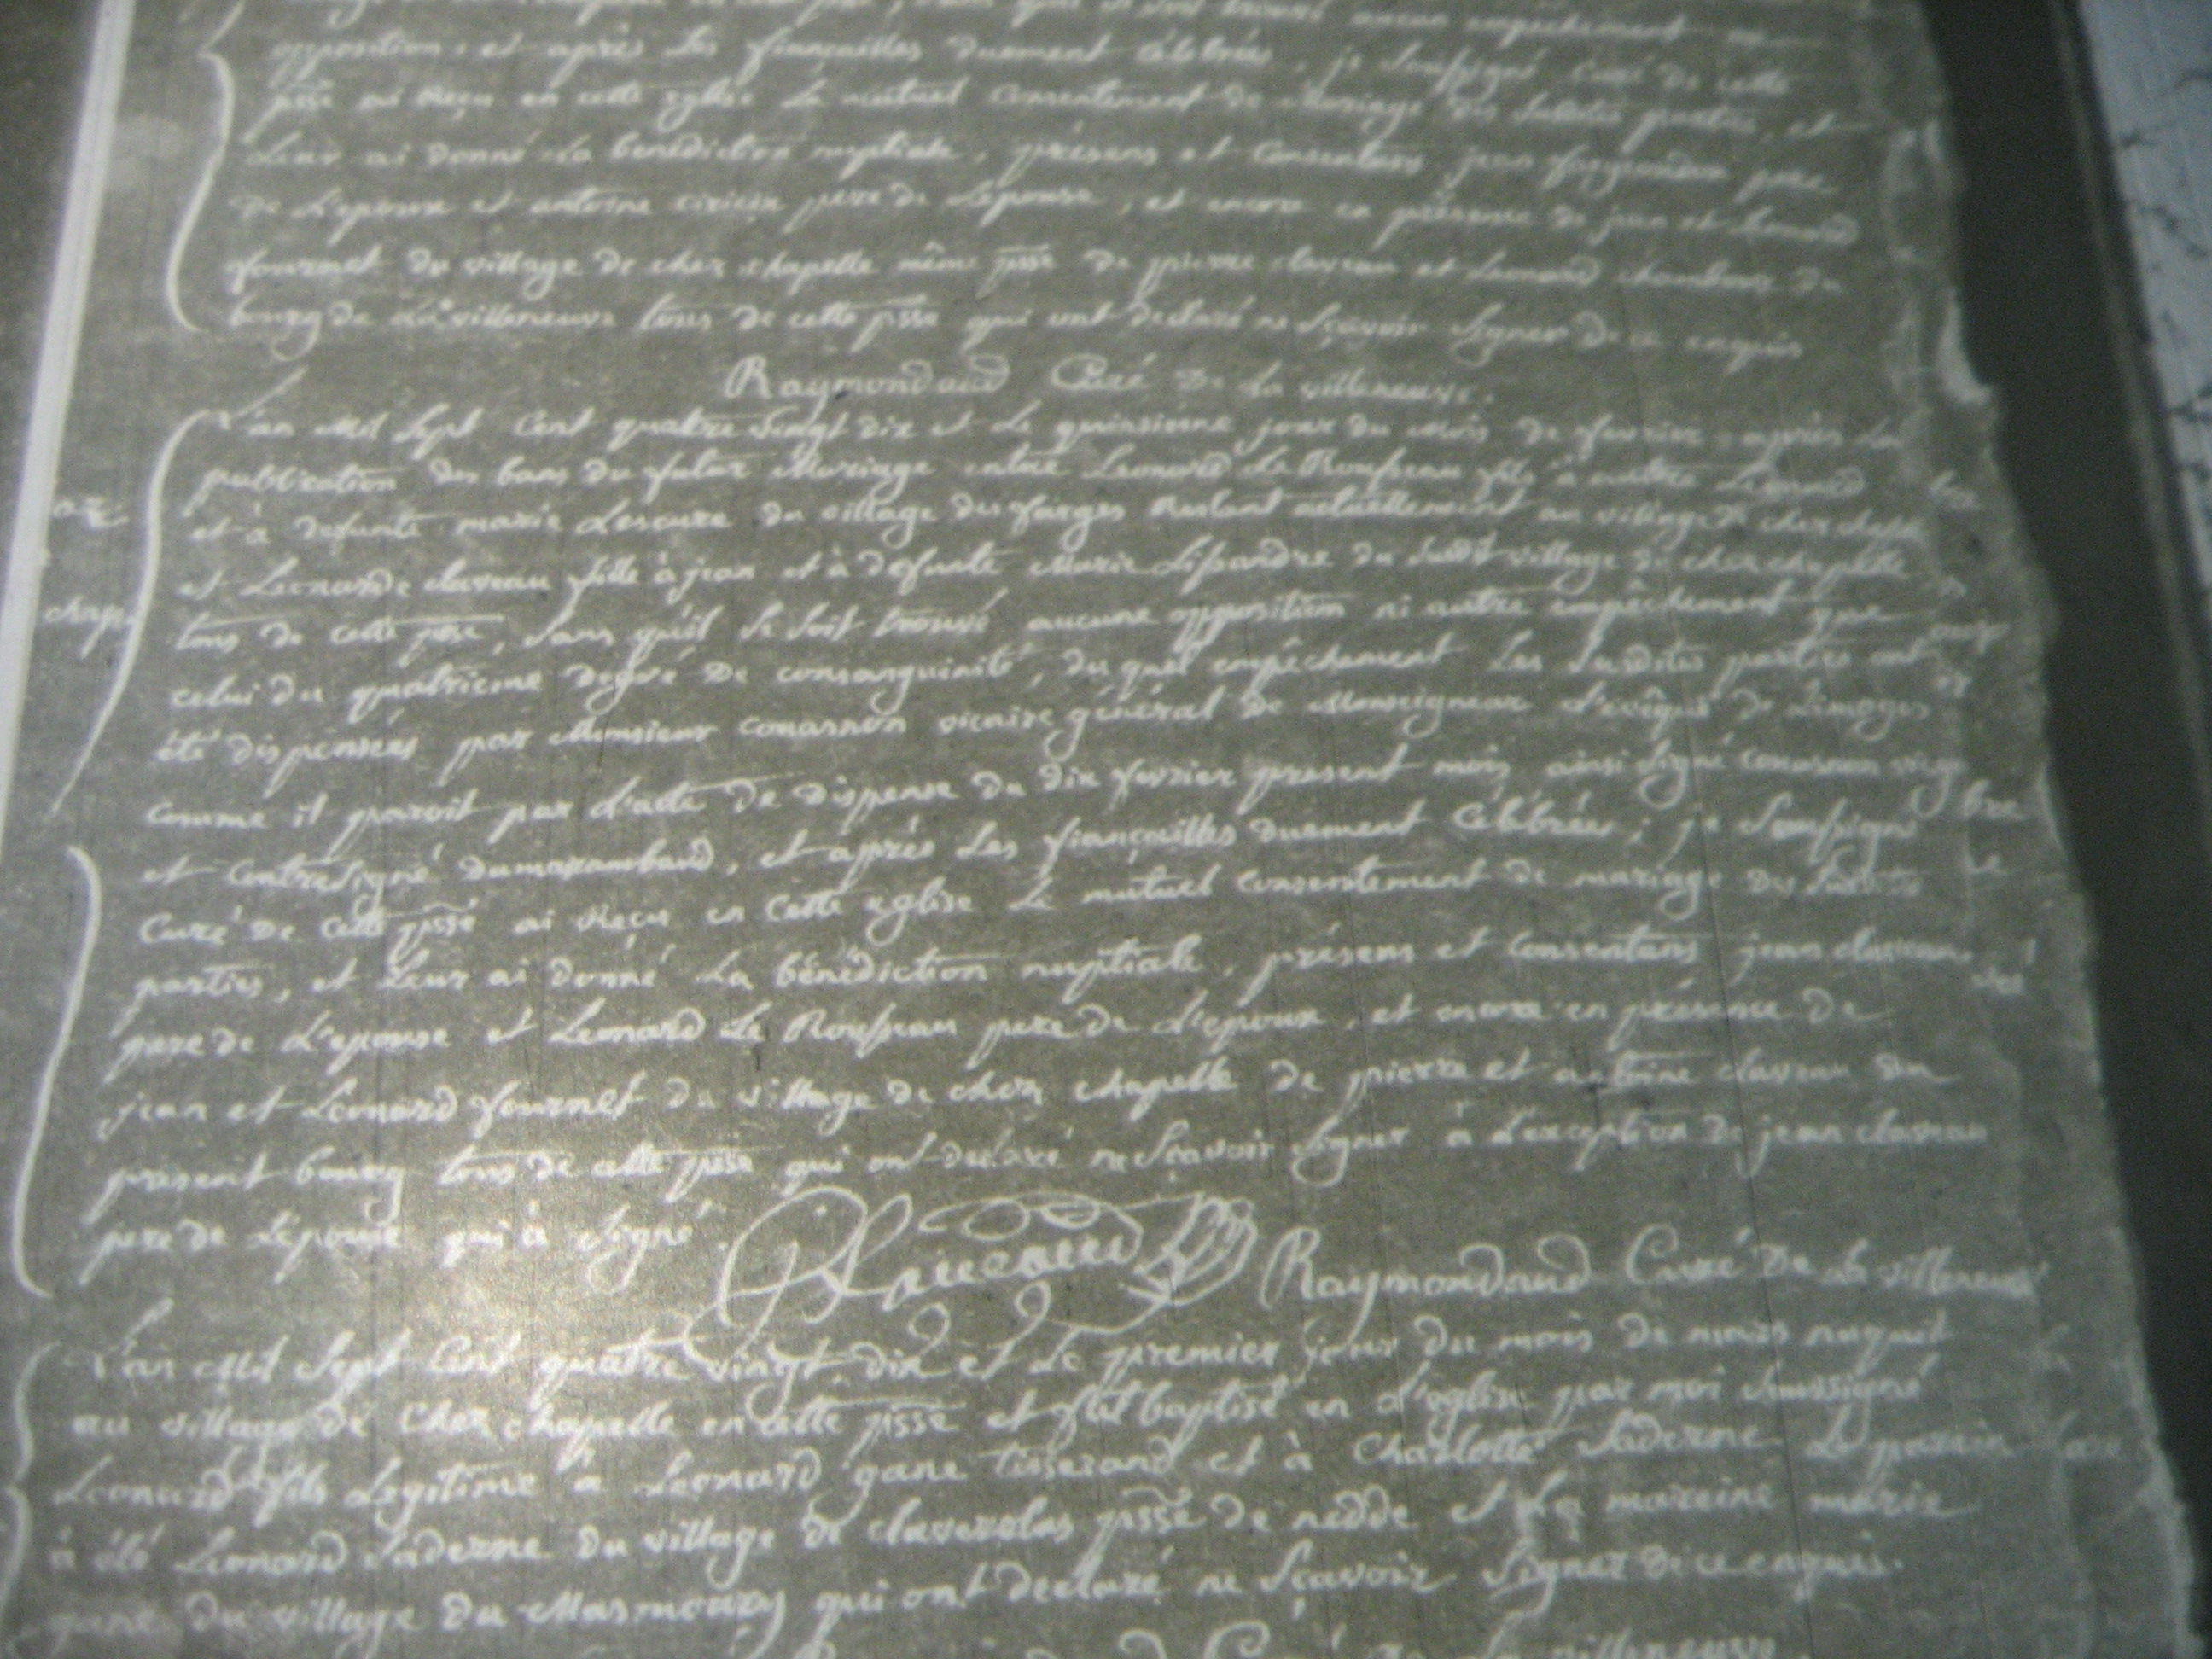 aucun empechement ni
opposition, et après les fiançailles duement célébrées, je soussigné Curé de cette
psse ai reçu en cette eglise le mutuel consentement de mariage des susdites parties, et
leur ai donné la bénédiction nuptiale, présens et consentans jean pere
de L'epoux et antoine pere de L'epouse, et encore en présence de jean et Leonard
fournet du village de chez chapelle même psse de pierre claveau et Leonard du
bourg de La villeneuve tous de cette psse qui ont declaré ne sçavoir signer de ce enquis
Raymondaud Curé de La villeneuve.
L'an Mil Sept Cent quatre vingt dix et Le quinzieme jour du mois de fevrier après La
publication des bans du futur Mariage entre Leonard Le Rousseau fils à autre Leonard
et à defunte marie Lescure du village des farges restant actuellement au village de chez chapelle
et Leonarde claveau fille à jean et à defunte Marie du susdit village de chez chapelle
tous de cette psse, sans qu'il se soit trouvé aucune opposition ni autre empêchement que
celui du quatrieme degré de consanguinité, du quel empêchement Les susdites parties ont
été dispensées par Monsieur conarnon vicaire général de Monseigneur L'evêque de Limoges
comme il paroit par L'acte de dispense du dix fevrier present mois ainsi signé
et contresigné dumazambaud, et après Les fiançailles duement célébrées ; je Soussigné
Curé de cette psse ai reçu en cette eglise Le mutuel consentement de mariage des susdites
parties, et Leur ai donné La bénédiction nuptiale, présens et consentans jean claveau
pere de L'epouse et Leonard Le Rousseau pere de L'epoux, et encore en présence de
jean et Léonard fournet du village de chez chapelle de pierre et antoine claveau du
present bourg tous de cette psse qui ont declaré ne Sçavoir signer à L'exception de jean claveau
pere de L'epouse qui a signé. Raymondaud Curé de La villeneuve
L'an Mil Sept Cent quatre vingt dix et Le premier jour du mois de mars naquit
au village de Chez chapelle en cette psse et fut baptisé en L'eglise par moi soussigné
Leonard fils Legitime à Leonard gane tisserand et à Charlotte Saderne Le parrin
a été Leonard Saderne du village de claverolas psse de nedde et La mareine marie
gane du village du Masmoury qui ont declaré ne Sçavoir signer de ce enquis.